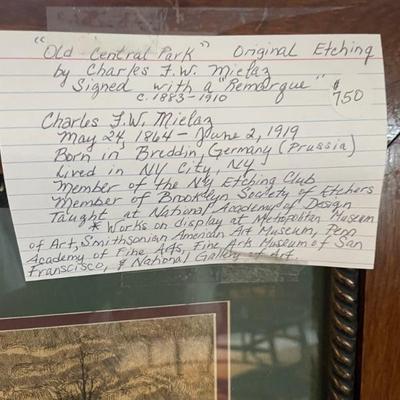 "Old Central Park" Original Etching
by Charles F.W. Mielaz
Signed with a "Remarque"
c. 1883-1910
$750
Charles F.W. Mielaz
May 24, 1864 - June 2, 1919
Born in Breddin, Germany (Prussia)
Lived in NY City, NY
Member of the NY Etching Club
Member of Brooklyn Society of Etchers
Taught at National Academy of Design
* Works on display at Metropolitan Museum
of Art, Smithsonian American Art Museum, Penn
Academy of Fine Arts, Fine Arts Museum of San
Franscisco, & National Gallery of Art.